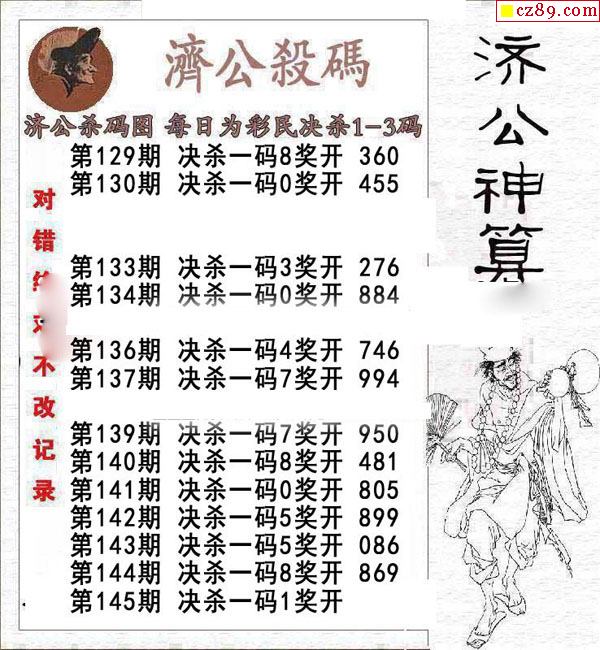 cz89.com
濟公殺碼
济公杀码图 每日为彩民决杀1-3码
第129期 决杀一码8奖开 360
第130期 决杀一码0奖开 455
第133期 决杀一码3奖开 276
第134期 决杀一码0奖开 884
第136期 决杀一码4奖开 746
第137期 决杀一码7奖开 994
第139期 决杀一码7奖开 950
第140期 决杀一码8奖开 481
第141期 决杀一码0奖开 805
第142期 决杀一码5奖开 899
第143期 决杀一码5奖开 086
第144期 决杀一码8奖开 869
第145期 决杀一码1奖开
对错不改记录
济公神算